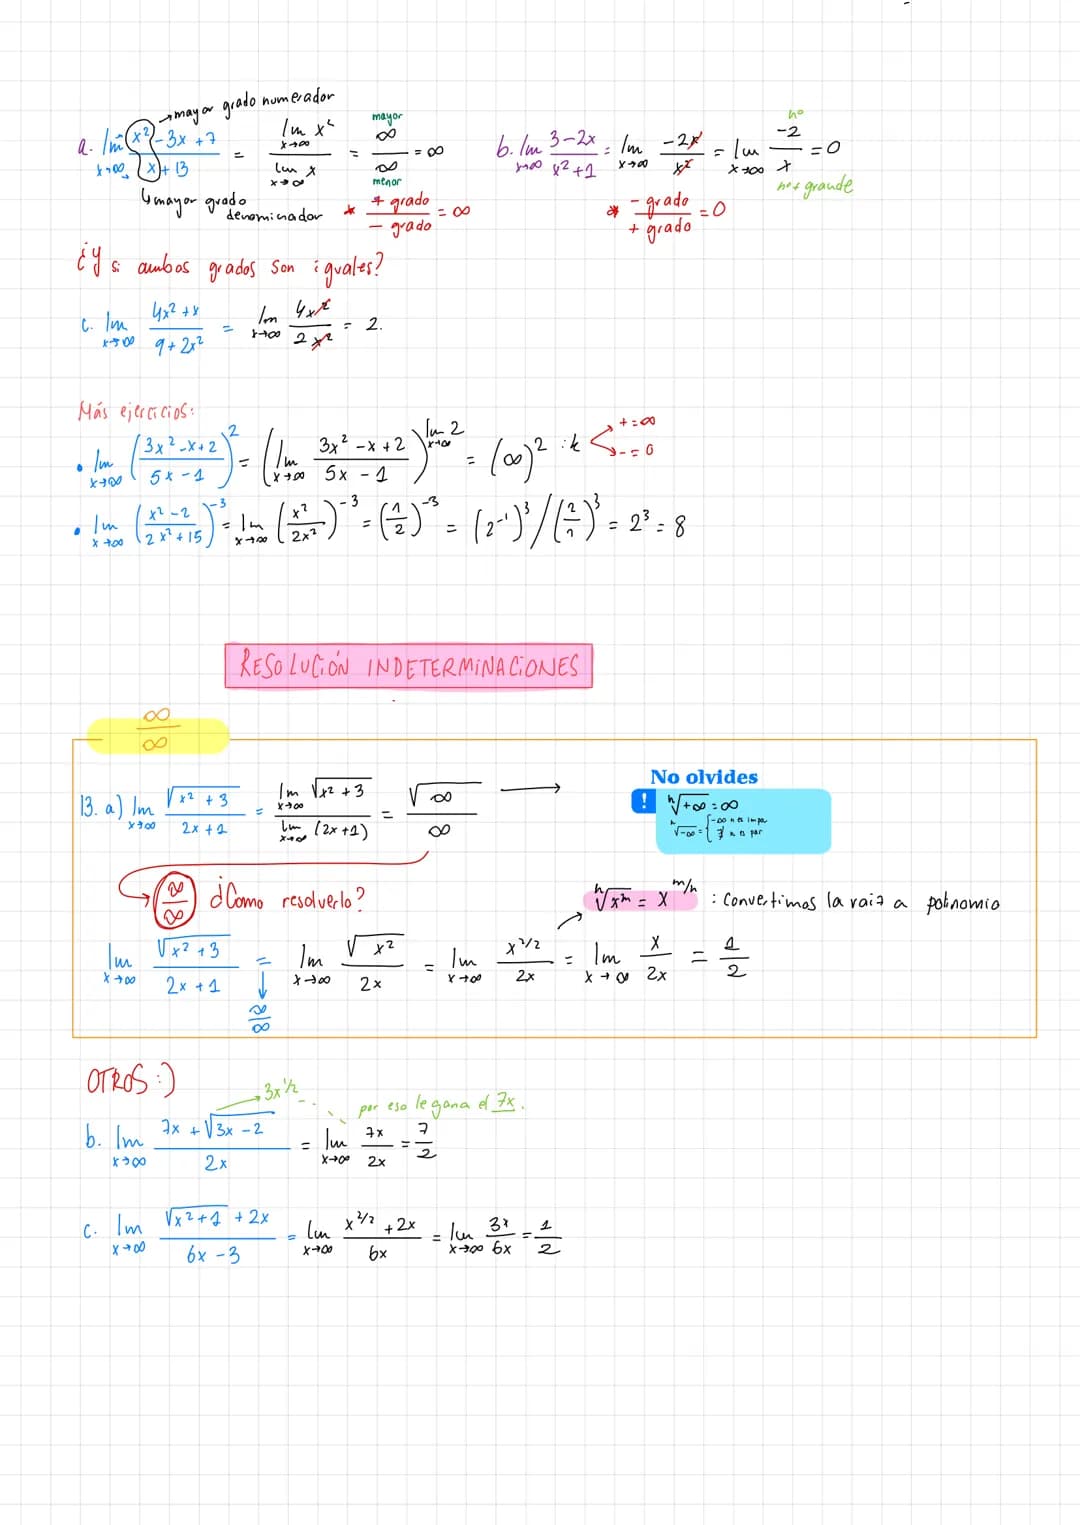 →mayor grado numerador
a. lim x→∞ (x² - 3x + 7)/(x + 13) = (lim x→∞ x²)/(lim x→∞ x) = mayor ∞/∞ menor = ∞
b. lim x→∞ (3-2x)/(x²+1) = lim x→∞ -2x/x² = lim x→∞ -2/x = 0
nº
nº + grande
↳mayor grado denominador
* + grado/- grado = ∞
* - grado/+ grado = 0
¿Y si ambos grados son iguales?
c. lim x→∞ (4x² + x)/(9 + 2x²) = lim x→∞ 4x²/2x² = 2.
Más ejercicios:
• lim x→∞ ((3x² - x + 2)/(5x - 1))² = (lim x→∞ (3x² - x + 2)/(5x - 1))^(lim x→∞ 2) = (∞)² : k + = ∞ - = 0
• lim x→∞ ((x² - 2)/(2x² + 15))⁻³ = lim x→∞ (x²/2x²)⁻³ = (1/2)⁻³ = (2⁻¹)³ / (2/1)³ = 2³ = 8
RESOLUCIÓN INDETERMINACIONES
∞/∞
13. a) lim x→∞ √(x² + 3)/(2x + 1) = (lim x→∞ √(x² + 3))/(lim x→∞ (2x + 1)) = √∞/∞ →
No olvides
! ⁿ√+∞ = ∞
ⁿ√-∞ = { -∞ n es impar
∄ n es par
∞/∞ ¿Como resolverlo?
ⁿ√xᵐ = x^(m/n) : Convertimos la raiz a polinomio
lim x→∞ √(x² + 3)/(2x + 1) = lim x→∞ √x²/2x = lim x→∞ x^(2/2)/2x = lim x→∞ x/2x = 1/2
↓ ∞/∞
OTROS :)
→3x^(1/2)
por eso le gana el 7x.
b. lim x→∞ (7x + √(3x - 2))/2x = lim x→∞ 7x/2x = 7/2
c. lim x→∞ (√(x² + 1) + 2x)/(6x - 3) = lim x→∞ (x^(2/2) + 2x)/6x = lim x→∞ 3x/6x = 1/2